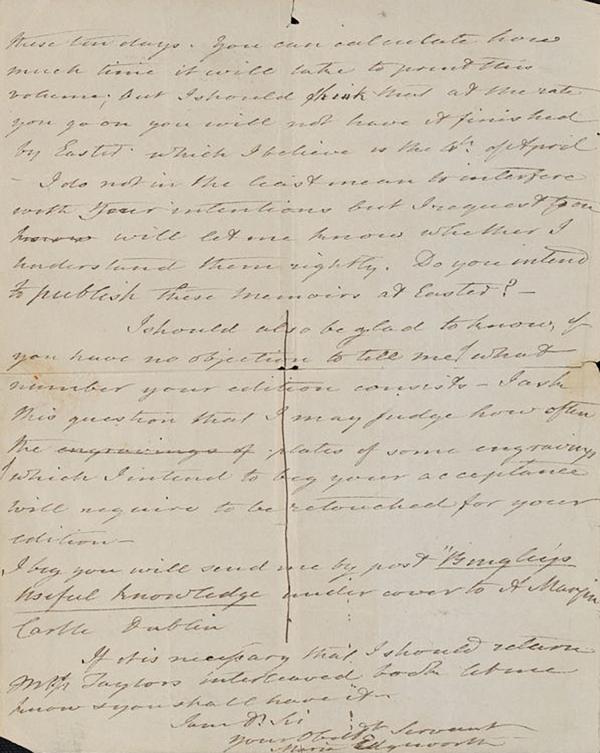 these ten days. You can calculate how
much time it will take to print this
volume; but I should think that at the rate
you go on you will not have it finished
by Easter which I believe is the 4th. of April
– I do not in the least mean to interfere
with your intentions but I request you
know will let me know whether I
understand them rightly. Do you intend
to publish these memoirs at Easter? –
I should also be glad to know, if
you have no objection to tell me, what
number your edition consists – I ask
this question that I may judge how often
the engravings of plates of some engravings
which I intend to beg your acceptance
will require to be retouched for your
edition –
I beg you will send me by post "Bingley's
Useful Knowledge under cover to A
Castle Dublin
If it is necessary that I should return
Taylors interleaved book let me
know & you shall have it –
I am Dr. Sir
your Obedt Servant
Maria Edgeworth